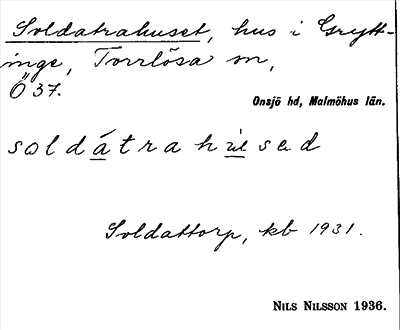 Soldatrahuset, hus i Grytt-
inge, Torrlösa sn,
Ö 37.
Onsjö hd, Malmöhus län.
soldátrahu̲sed
Soldattorp, kb 1931.
NILS NILSSON 1936.